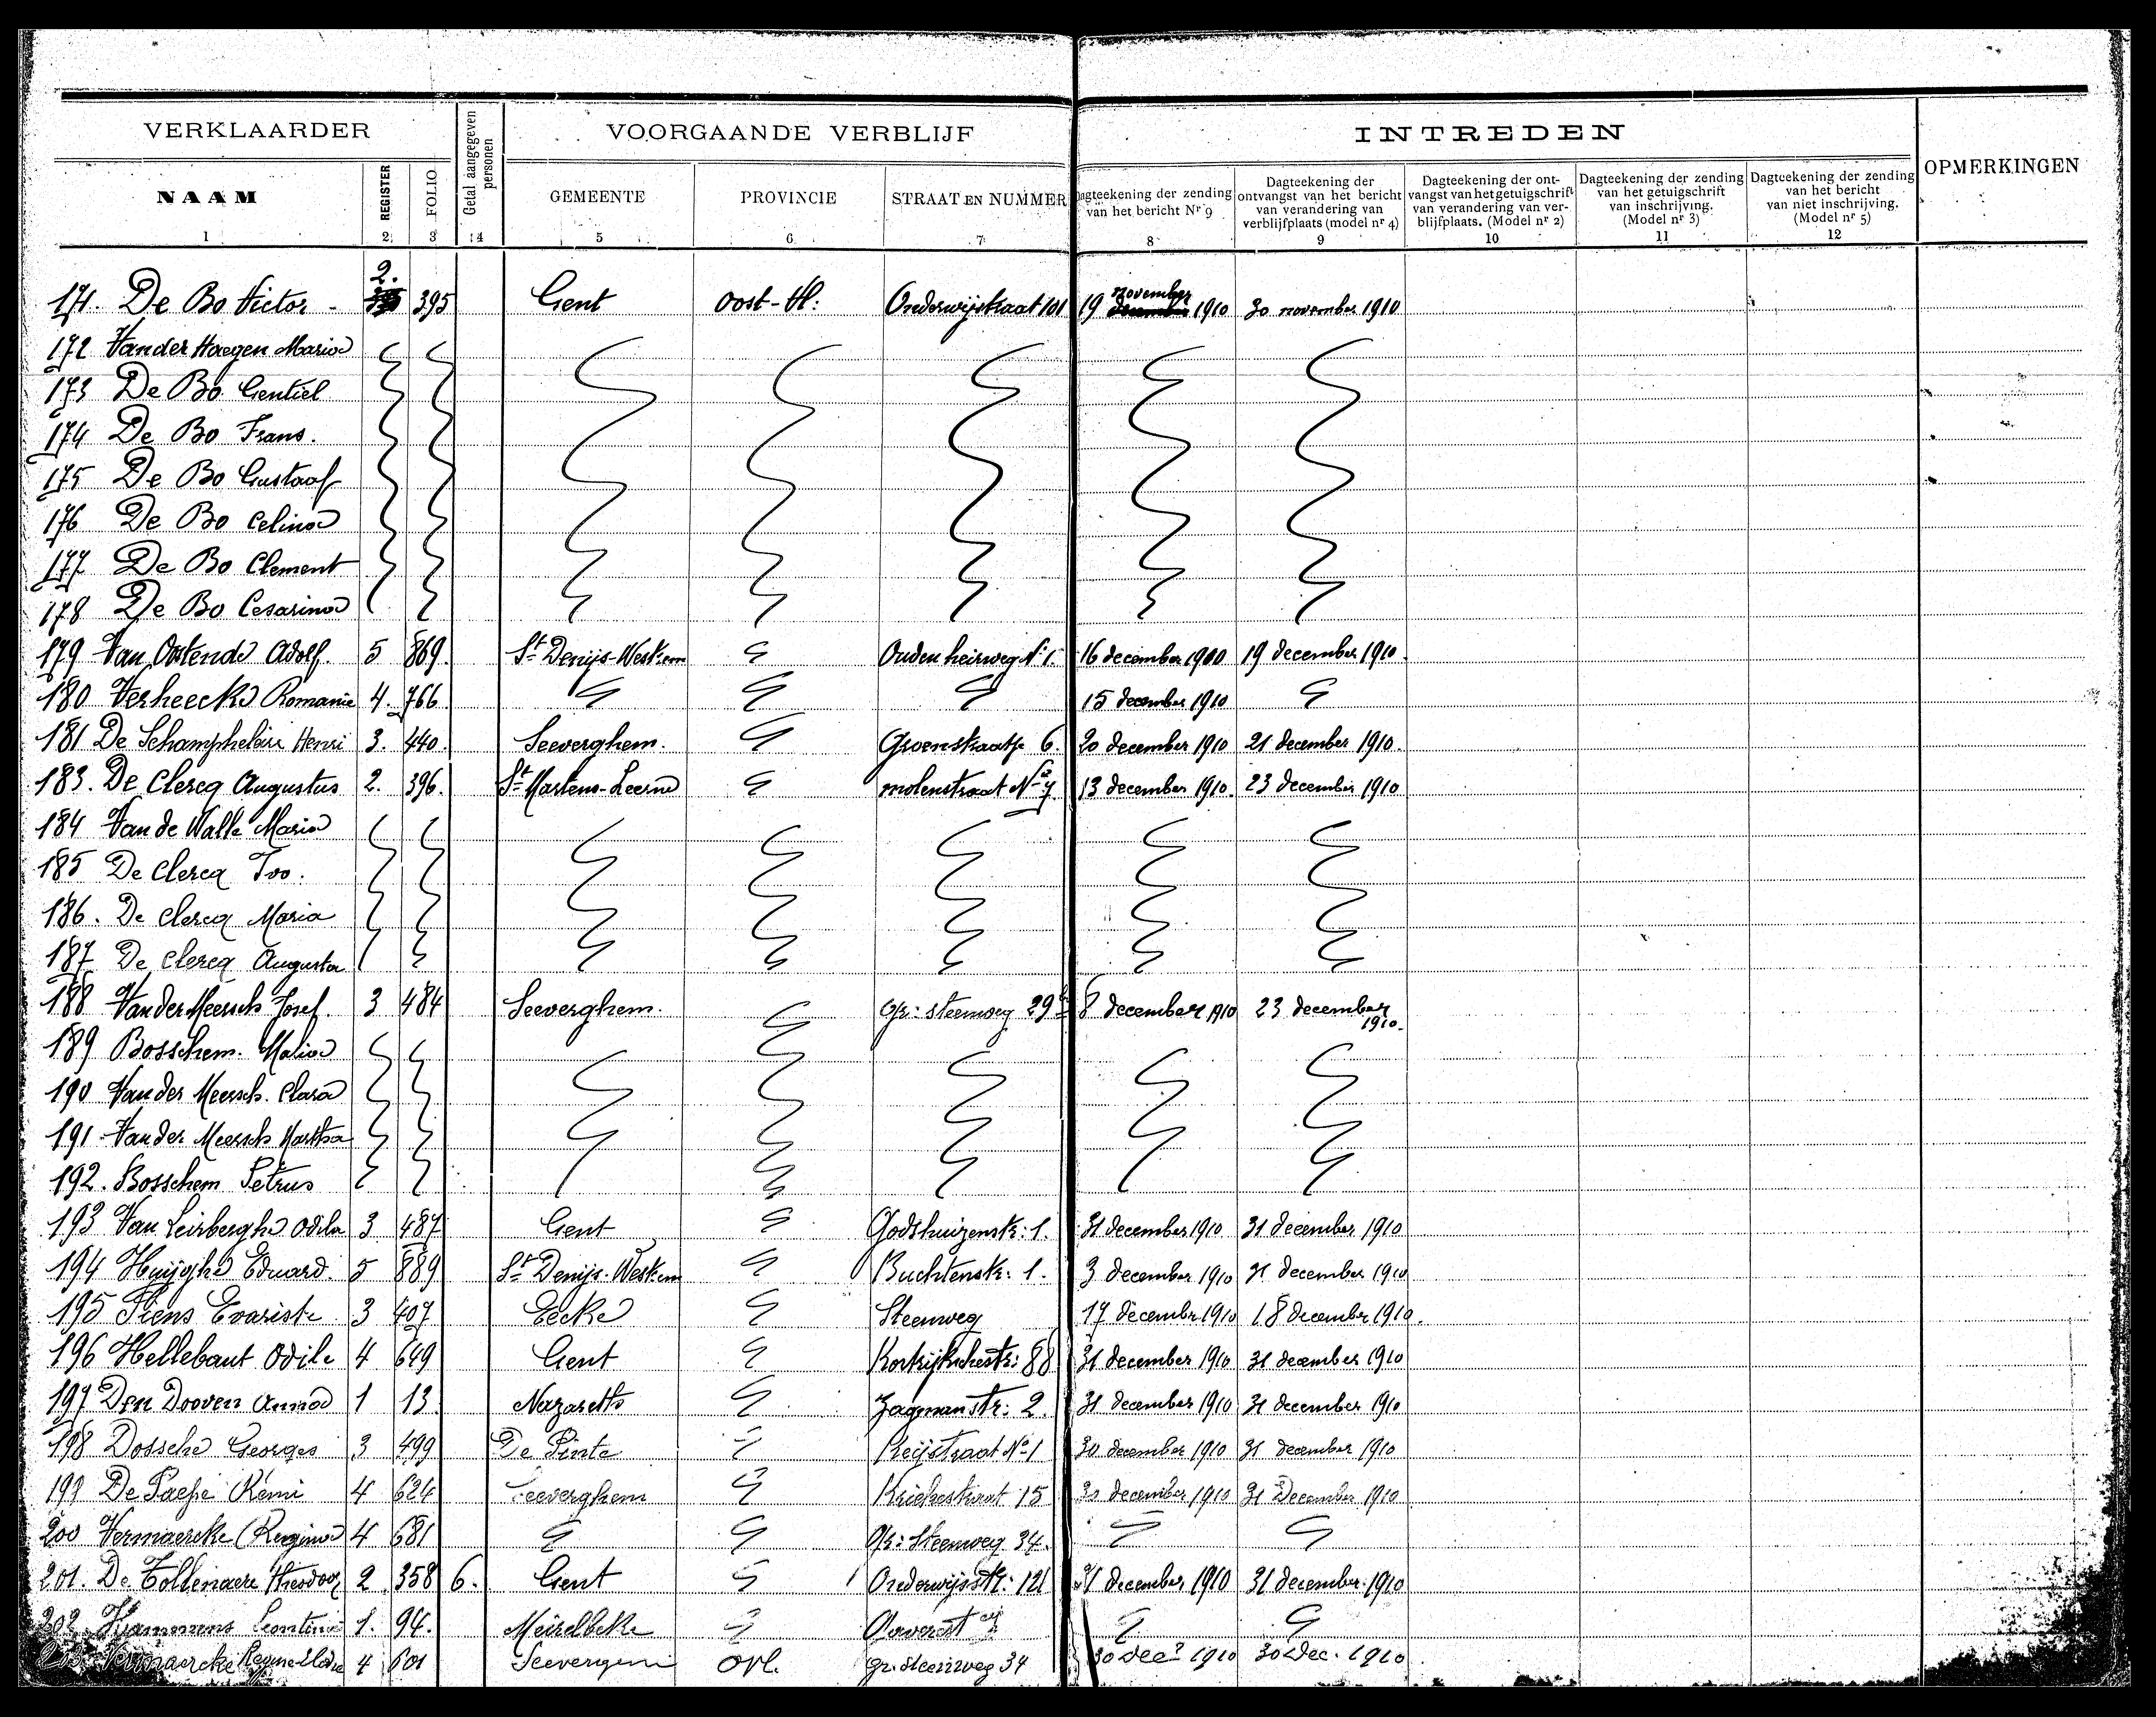 VERKLAARDER
Getal aangegeven personen
VOORGAANDE VERBLIJF
INTREDEN
OPMERKINGEN
NAAM REGISTER FOLIO GEMEENTE PROVINCIE STRAAT EN NUMMER
Dagteekening der zending van het bericht Nr 9
Dagteekening der ontvangst van het bericht van verandering van verblijfplaats (model nr 4)
Dagteekening der ontvangst van het getuigschrift van verandering van verblijfplaats. (Model nr 2)
Dagteekening der zending van het getuigschrift van inschrijving. (Model nr 3)
Dagteekening der zending van het bericht van niet inschrijving. (Model nr 5)
1 2 3 4 5 6 7 8 9 10 11 12
171. De Bo Victor - 2. 395 Gent Oost-Vl: Onderwijstraat 101 19 november 1910 30 november 1910
172 Van der Haegen Maria
173 De Bo Gentiel
174 De Bo Frans.
175 De Bo Gustaaf
176 De Bo Celina
177 De Bo Clement
178 De Bo Cesarina
179 Van Oostende Adolf. 5 869. St Denijs-Westrem Ouden heirweg No 1. 16 december 1900 19 december 1910.
180 Verheecke Romanie 4. 766 15 december 1910
181 De Schamphelaire Henri 3. 440. Seeverghem. Groenstraatje 6. 20 december 1910 21 december 1910.
183. De Clercq Augustus 2. 396. St Martens-Leerne molenstraat No 7. 13 december 1910. 23 december 1910
184 Van de Walle Maria
185 De Clercq Ivo.
186. De Clercq Maria
187 De Clercq Augusta
188 Van der Meersch Josef. 3 484 Seeverghem. Gr: steenweg 29 8 december 1910 23 december 1910.
189 Bosschem. Malia
190 Van der Meersch. Clara
191. Van der Meersch Martha
192. Bosschem Petrus
193 Van Leirberghe Odila 3 487 Gent Godshuizenstr: 1. 31 december 1910 31 december 1910
194 Huijghe Eduard. 5 889 St Denijs-Westrem Buchtenstr: 1. 3 december 1910 31 december 1910
195 Evariste 3 407 Eecke Steenweg 17 december 1910 18 december 1910.
196 Hellebaut Odile 4 649 Gent Kortrijkschestr: 88 31 december 1910 31 december 1910
197 Den Dooven Anna 1 13 Nazareth Zagmanstr: 2. 31 december 1910 31 december 1910
198 Dossche Georges 3 499 De Pinte Keijstraat No 1 30 december 1910 31 december 1910
199 De Paepe Remi 4 624 Seeverghem Kriekestraat 15 30 december 1910 31 December 1910
200 Vermaercke Regina 4 681 Gr: Steenweg 34.
201. De Tollenaere Theodoor 2 358 6. Gent Onderwijsstr: 121 31 december 1910 31 december 1910
202 Leontine 1. 94. Meirelbeke
Vermaercke 4 601 Seevergem Ovl. gr. steenweg 34 30 dec 1910 30 Dec. 1910